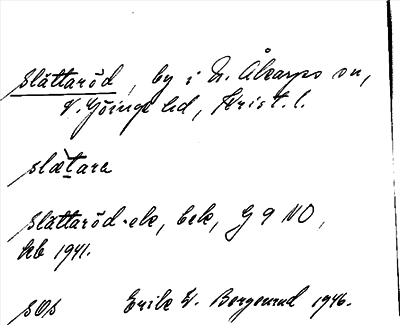 Slättaröd, by i N. Åkarps sn,
V. Göinge hd, Krist. l.
slætara
Slättaröd-ek, bek, G 9 NO,
hb 1941.
sØs Erik W. Borgenud 1946.